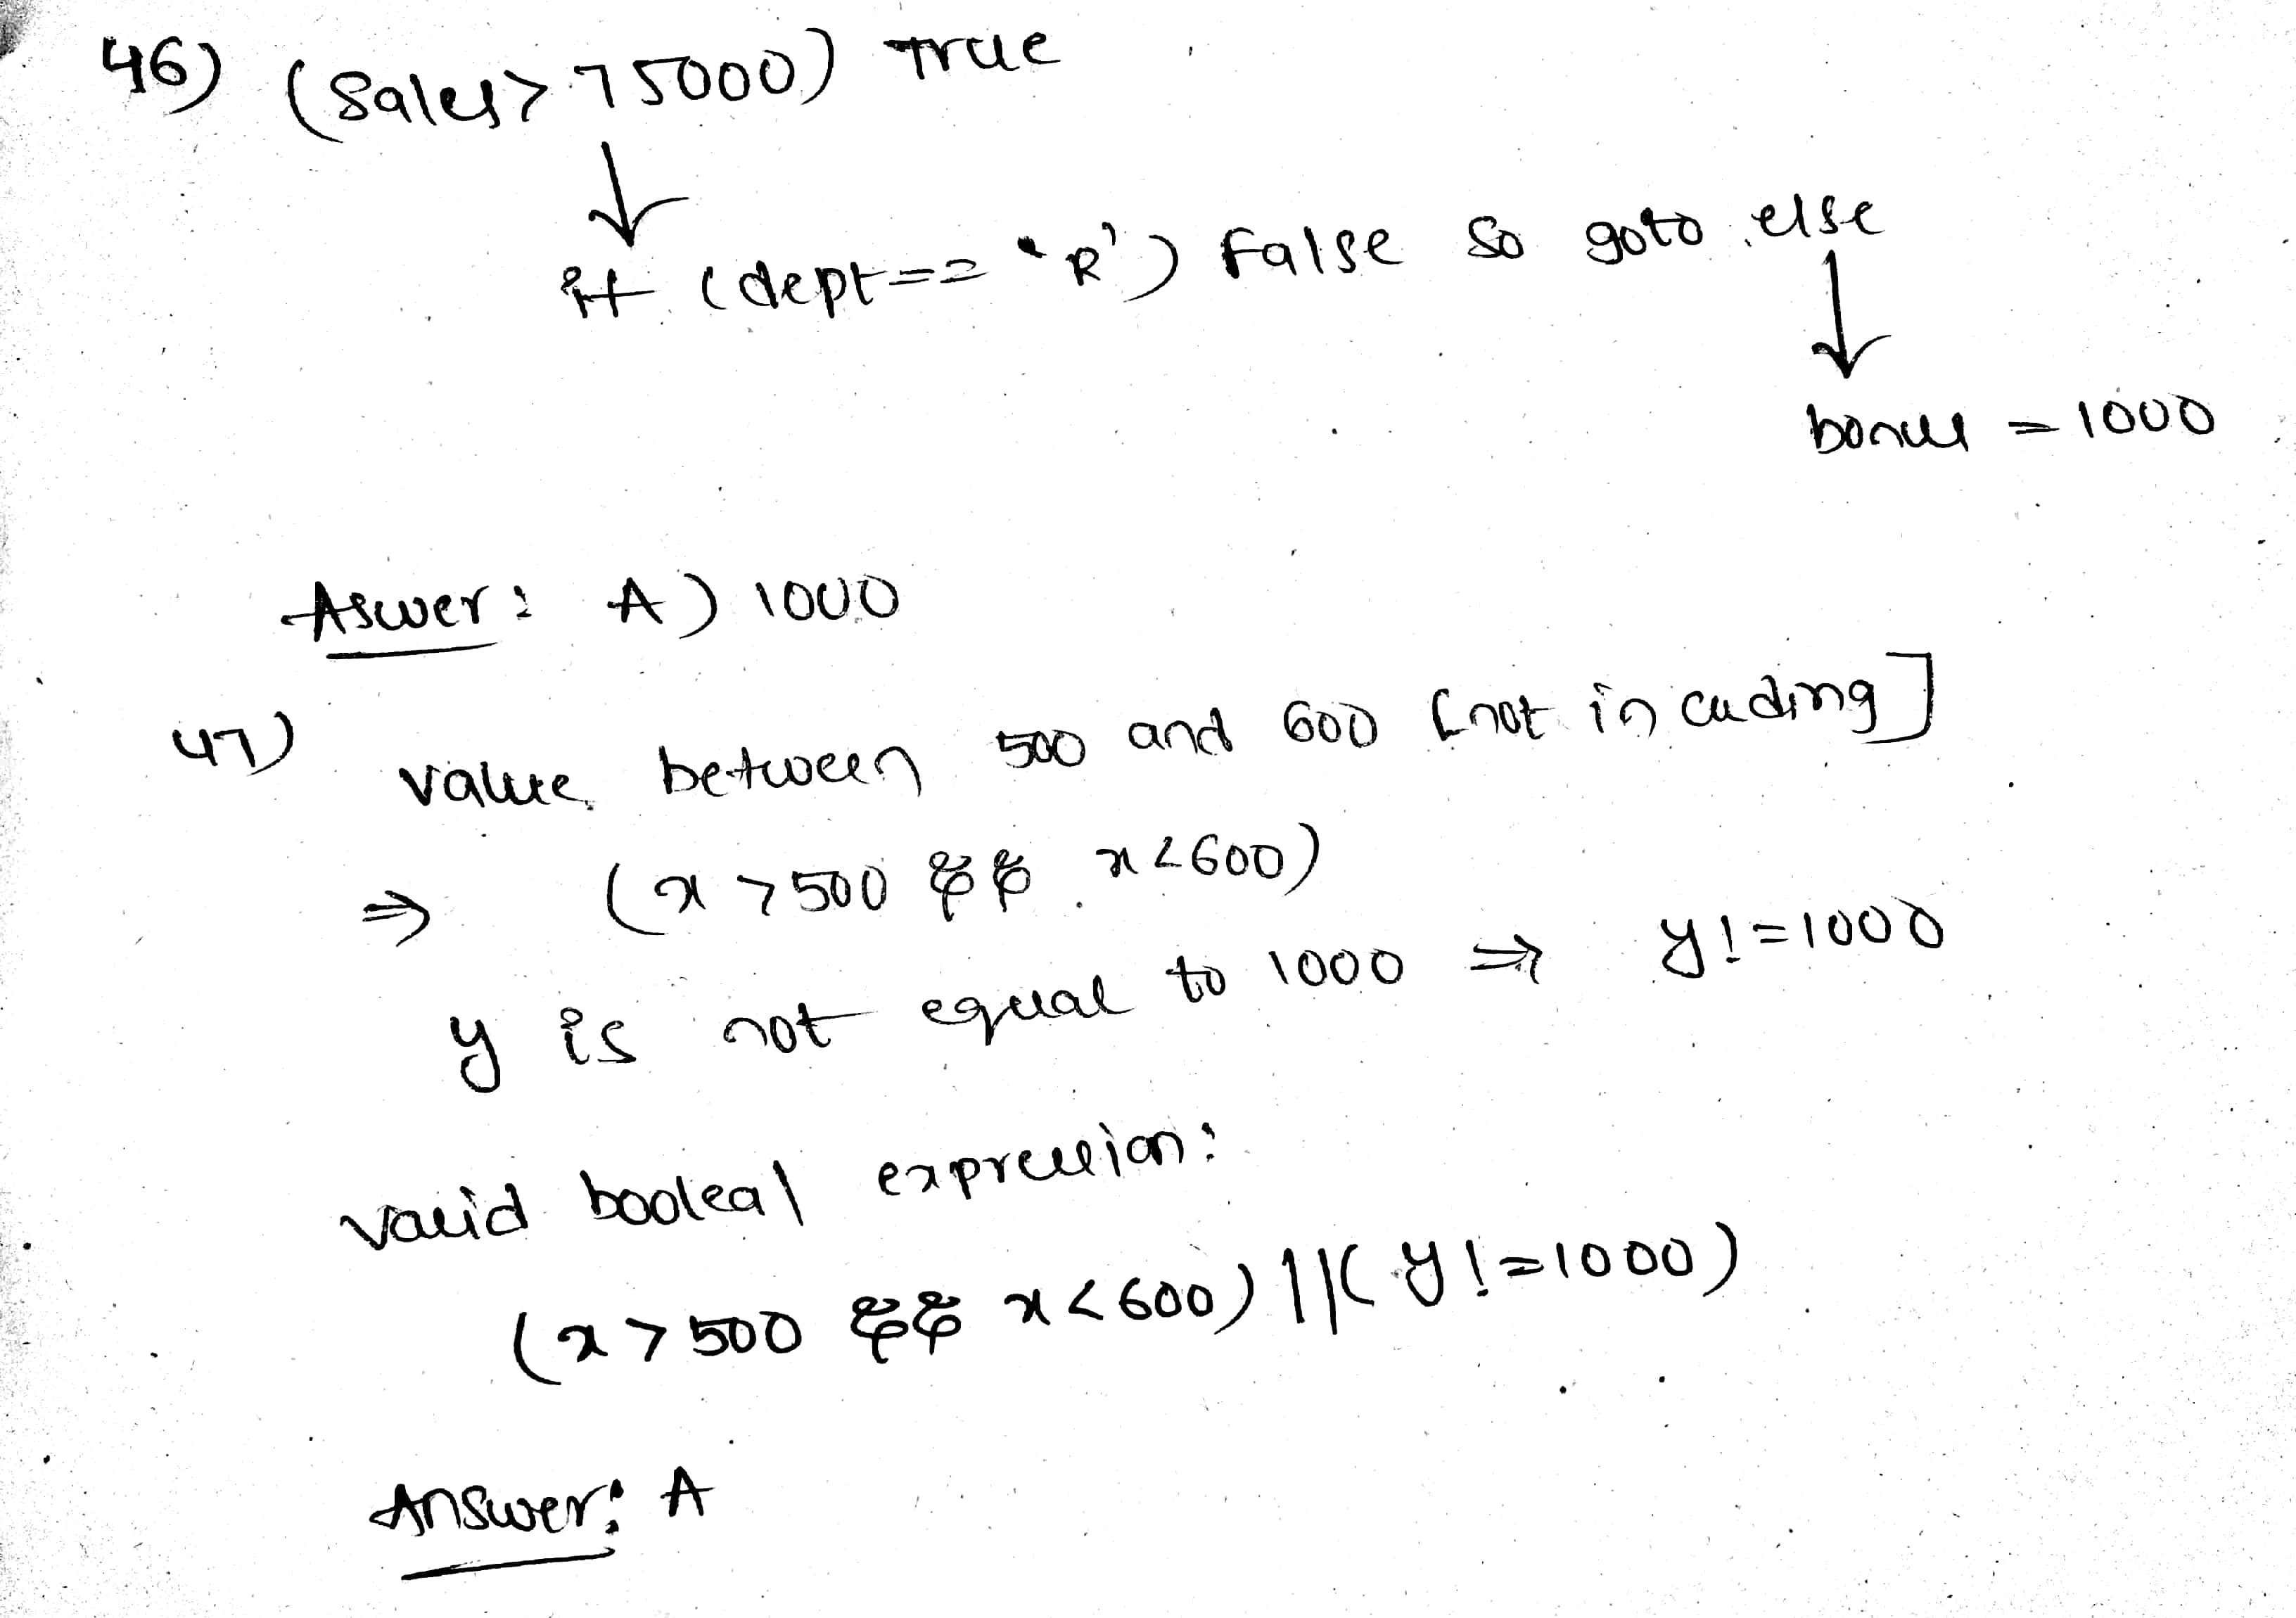 46) (Sales > 75000) True
if (dept == 'R') False so goto else
bonus = 1000
Aswer: A) 1000
47) value between 500 and 600 [not incuding]
⇒ (x > 500 && x < 600)
y is not equal to 1000 ⇒ y != 1000
valid booleal expression:
(x > 500 && x < 600) || (y != 1000)
Answer: A